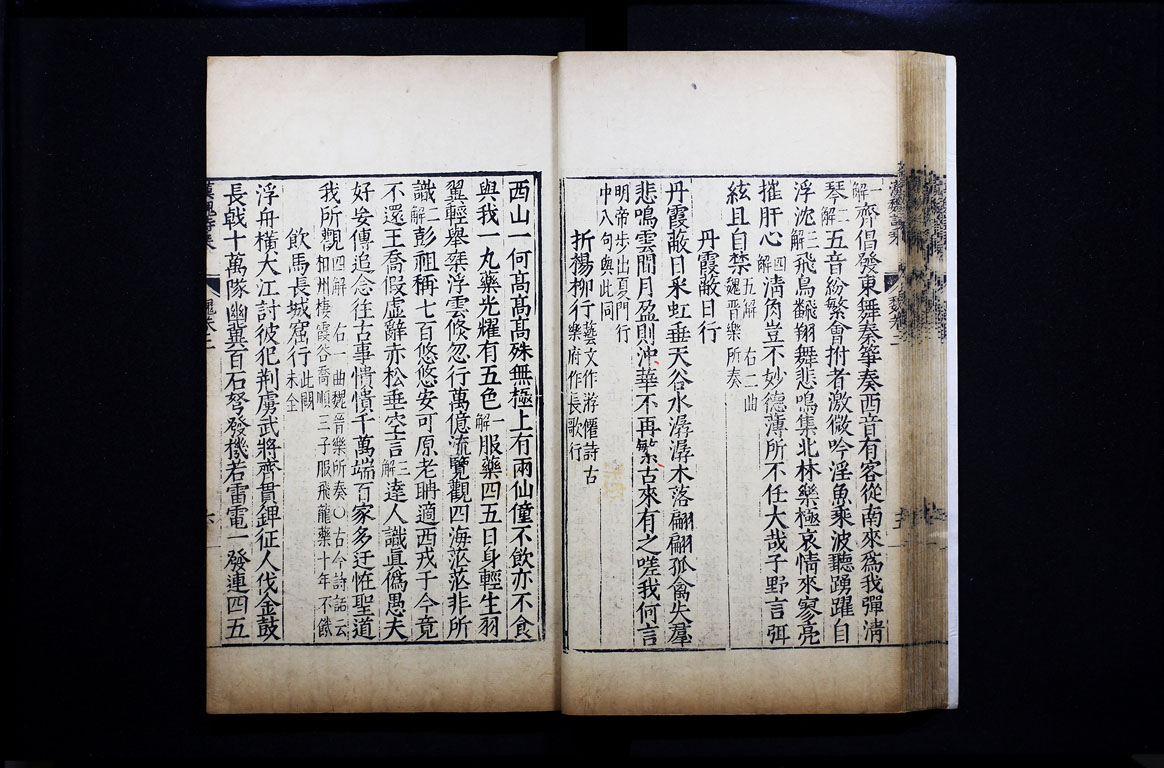 一解齊倡發東舞秦箏奏西音有客從南來爲我彈清
琴二解五音紛繁會拊者激微吟淫魚乘波聽踴躍自
浮沈三解飛鳥飜翔舞悲鳴集北林樂極哀情來寥亮
摧肝心四解清角豈不妙德薄所不任大哉子野言弭
絃且自禁五解 右二曲魏晉樂所奏
丹霞蔽日行
丹霞蔽日采虹垂天谷水潺潺木落翩翩孤禽失羣
悲鳴雲間月盈則沖華不再繁古來有之嗟我何言
明帝步出夏門行中八句與此同
折楊柳行藝文作游僊詩古樂府作長歌行
西山一何高高高殊無極上有兩仙僮不飲亦不食
與我一丸藥光耀有五色一解服藥四五日身輕生羽
翼輕舉乗浮雲倏忽行萬億流覽觀四海茫茫非所
識二解彭祖稱七百悠悠安可原老聃適西戎于今竟
不還王喬假虛辭赤松垂空言三解達人識眞僞愚夫
好妄傳追念往古事憒憒千萬端百家多迂怪聖道
我所觀四解 右一曲魏晉樂所奏○古今詩話云相州棲霞谷喬順二子服飛龍藥十年不饑
飲馬長城窟行此闋未全
浮舟橫大江討彼犯荆虜武將齊貫錍征人伐金鼓
長戟十萬隊幽冀百石弩發機若雷電一發連四五
魏卷二
六